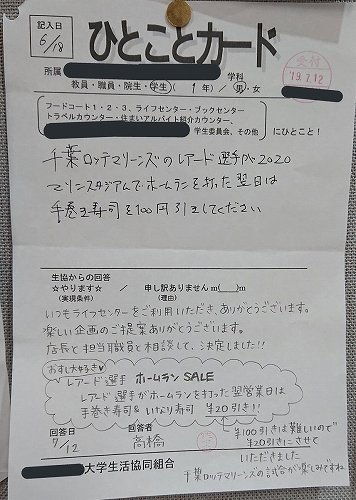 記入日
6/18
ひとことカード
受付
'19.7.12
所属 学科
教員・職員・院生・学生( 1年)/男・女
フードコート1・2・3、ライフセンター・ブックセンター
トラベルカウンター・住まいアルバイト紹介カウンター、
学生委員会、その他 にひとこと!
千葉ロッテマリーンズのレアード選手が2020
マリンスタジアムでホームランを打った翌日は
手巻き寿司を100円引きしてください
生協からの回答
☆やります☆ / 申し訳ありません m(__)m
(実現条件) (理由)
いつもライフセンターをご利用いただき、ありがとうございます。
楽しい企画のご提案ありがとうございます。
店長と担当職員と相談して、決定しました!!
おすし大好き♡
レアード選手 ホームランSALE
レアード選手がホームランを打った翌営業日は
手巻き寿司&いなり寿司 ¥20引き!!
回答日
7/12
回答者
高橋
¥100引きは難しいので
¥20引きにさせて
いただきました
千葉ロッテマリーンズの試合が楽しみですね
大学生活協同組合